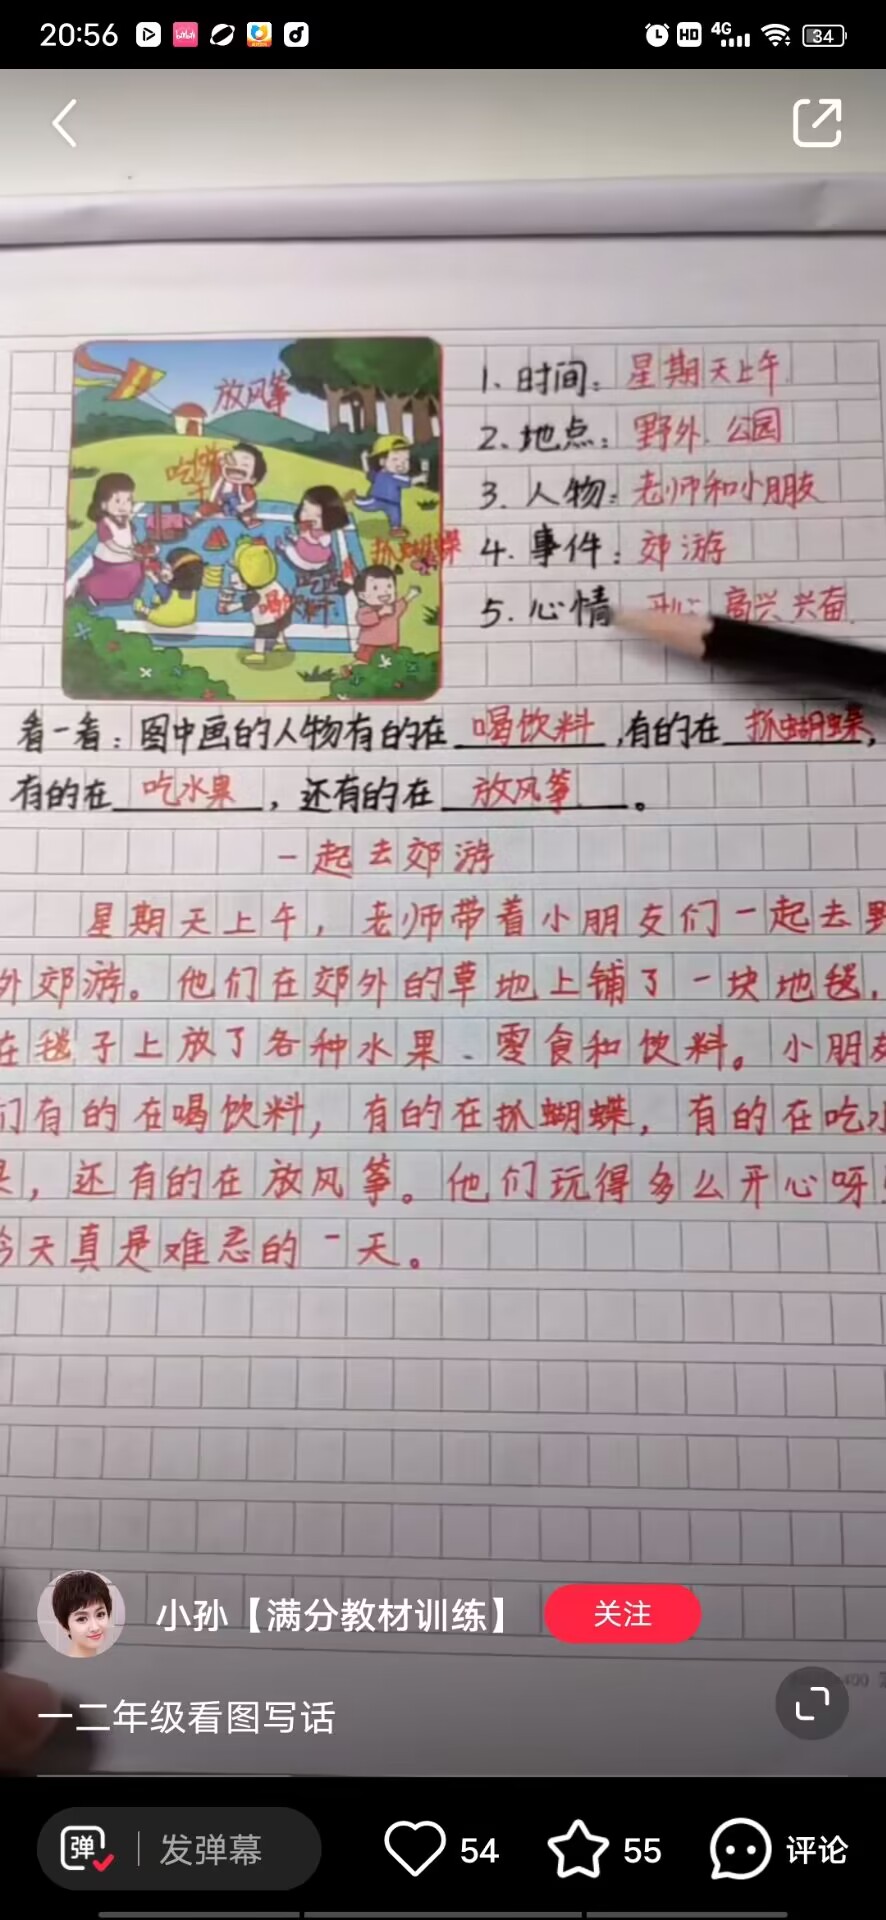 20:56
HD 4G 34
放风筝
抓蝴蝶
喝饮料
1. 时间：星期天上午
2. 地点：野外、公园
3. 人物：老师和小朋友
4. 事件：郊游
5. 心情 开心 高兴 兴奋
看一看：图中画的人物有的在喝饮料,有的在抓蝴蝶,
有的在吃水果，还有的在放风筝。
一起去郊游
星期天上午，老师带着小朋友们一起去野
外郊游。他们在郊外的草地上铺了一块地毯，
在毯子上放了各种水果、零食和饮料。小朋友
们有的在喝饮料，有的在抓蝴蝶，有的在吃水
果，还有的在放风筝。他们玩得多么开心呀！
今天真是难忘的一天。
小孙【满分教材训练】 关注
一二年级看图写话
弹 发弹幕 54 55 评论